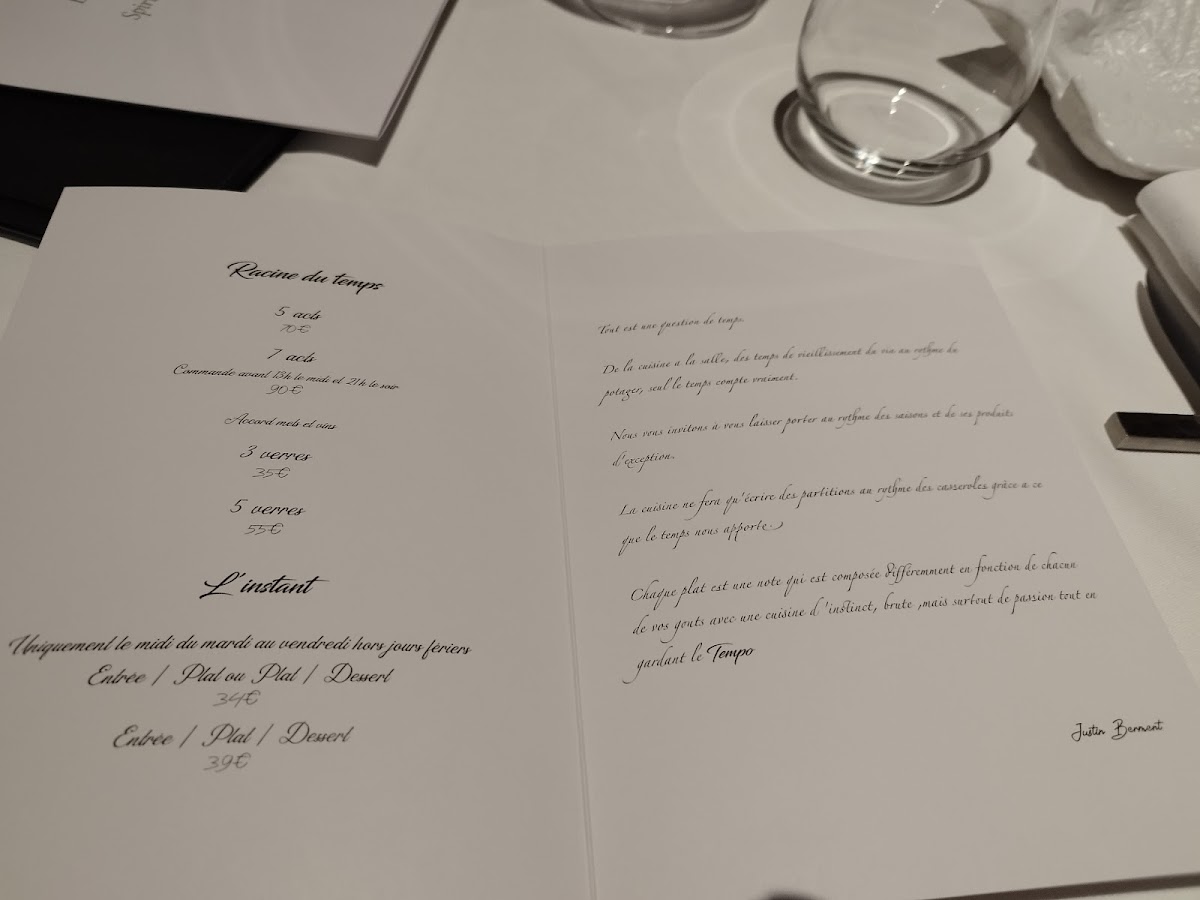 Spir
Racine du temps
5 acts
70€
7 acts
Commande avant 13h le midi et 21h le soir
90€
Accord mets et vins
3 verres
35€
5 verres
55€
L'instant
Uniquement le midi du mardi au vendredi hors jours fériers
Entrée / Plat ou Plat / Dessert
34€
Entrée / Plat / Dessert
39€
Tout est une question de temps.
De la cuisine a la salle, des temps de vieillissement du vin au rythme du
potager, seul le temps compte vraiment.
Nous vous invitons à vous laisser porter au rythme des saisons et de ses produits
d'exception.
La cuisine ne fera qu'écrire des partitions au rythme des casseroles grâce a ce
que le temps nous apporte.
Chaque plat est une note qui est composée différemment en fonction de chacun
de vos gouts avec une cuisine d'instinct, brute ,mais surtout de passion tout en
gardant le Tempo
Justin Berment